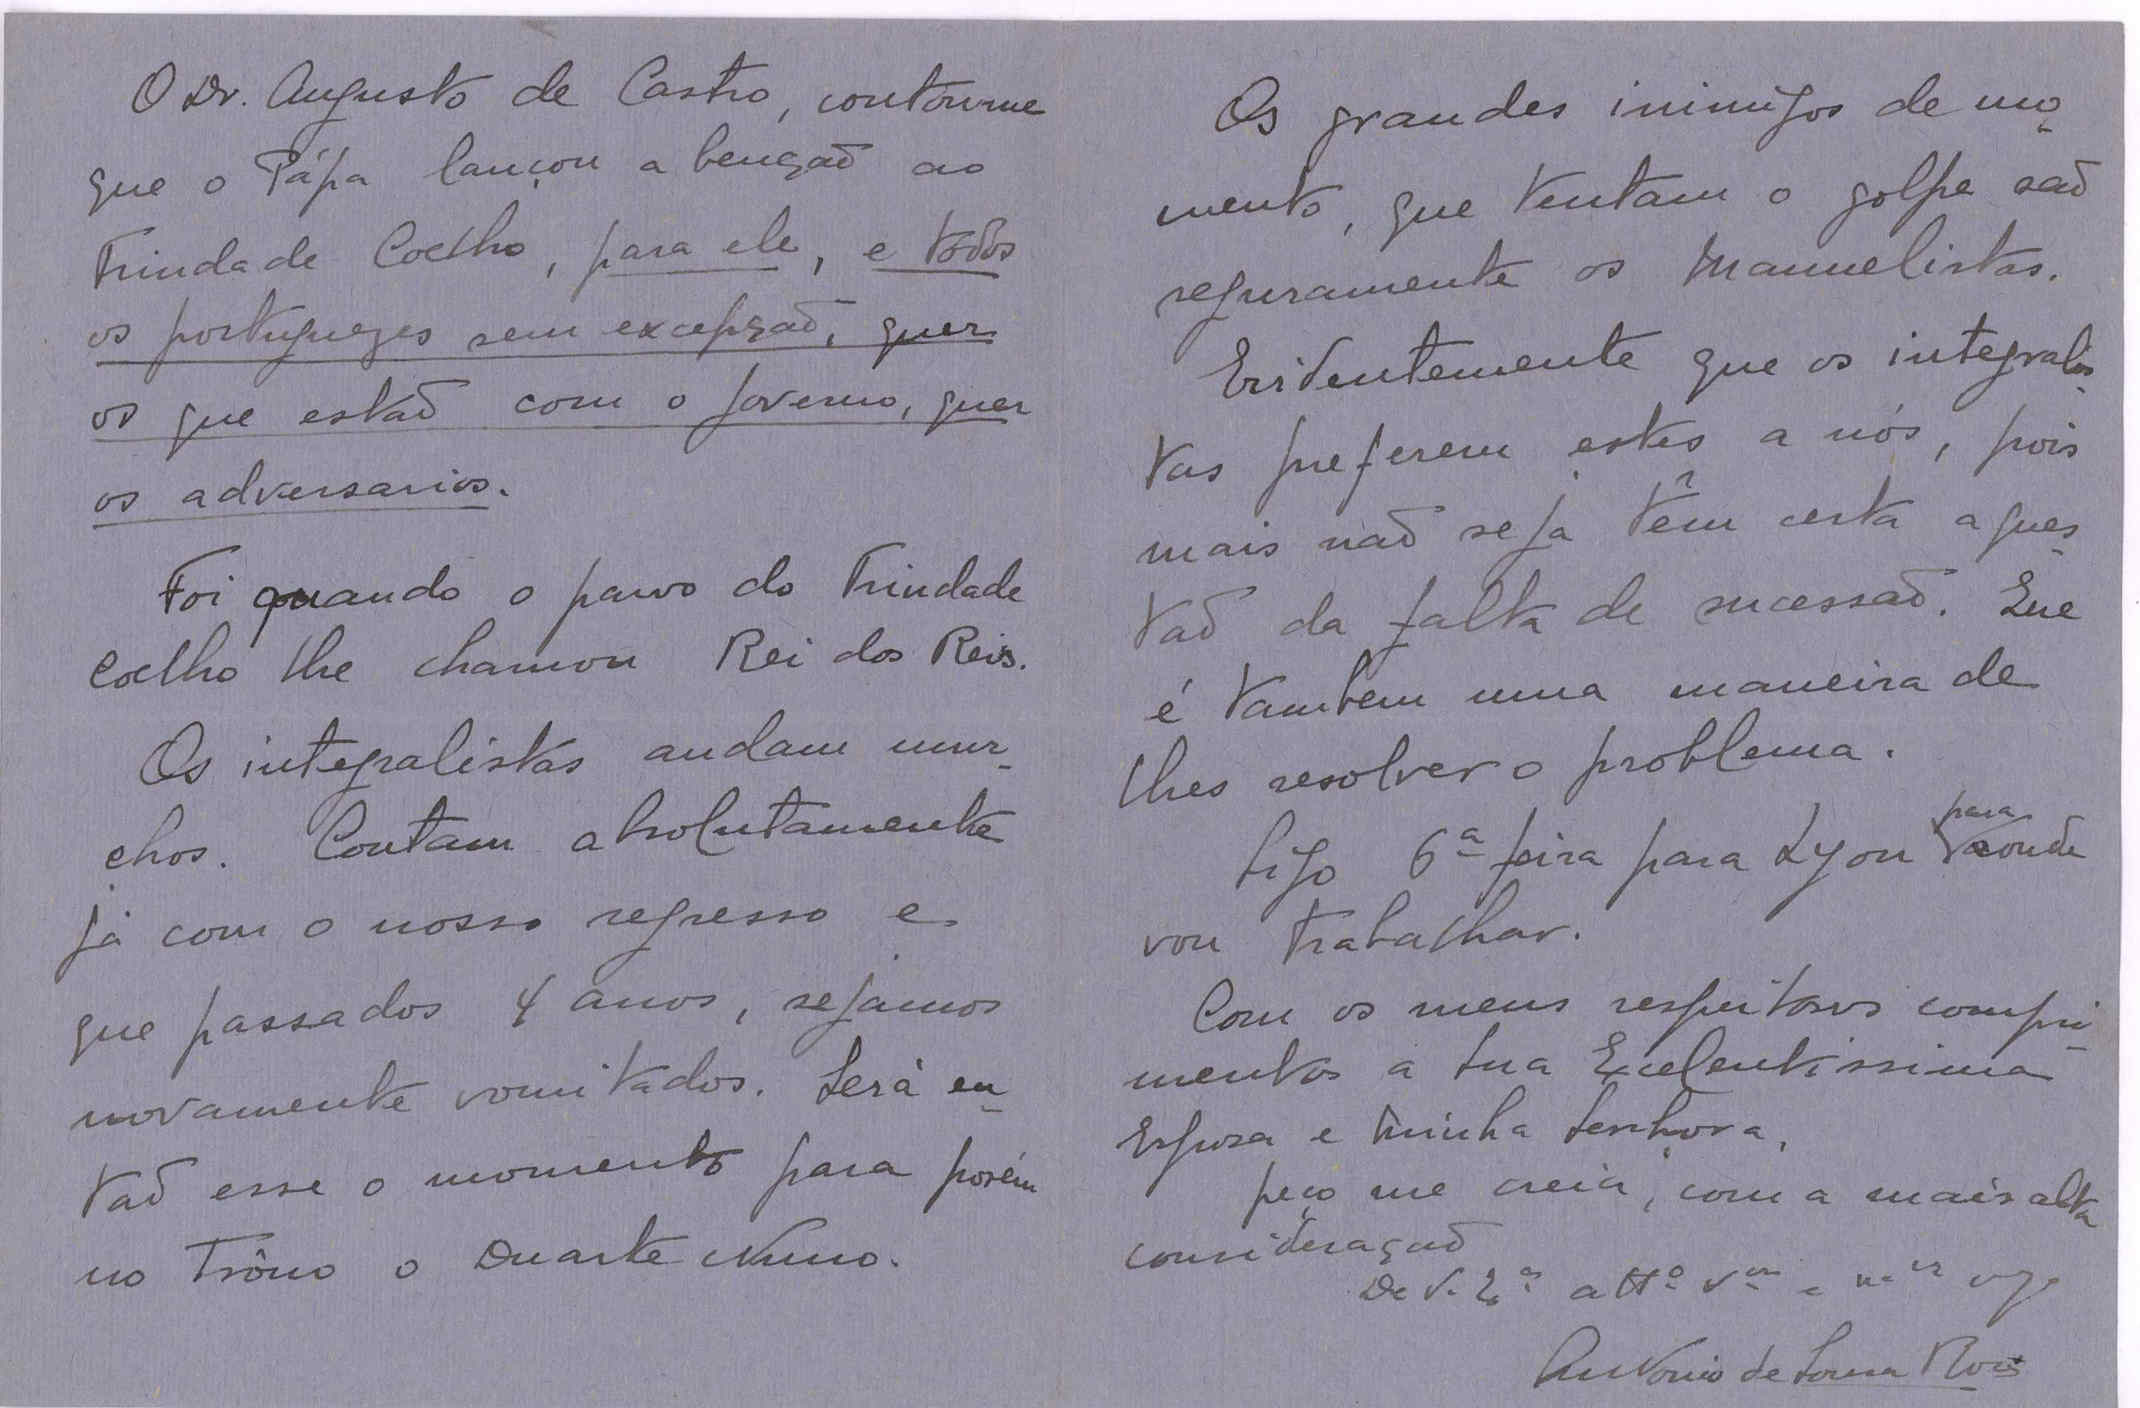 O Dr. Augusto de Castro, contou-me
que o Pápa lançou a bençaõ ao
Trindade Coelho, para ele, e todos
os portuguezes sem excepçaõ, quer
os que estaõ com o governo, quer
os adversarios.
Foi quando o parvo do Trindade
Coelho lhe chamou Rei dos Reis.
Os integralistas andam mur-
chos. Contam absolutamente
já com o nosso regresso e
que passados 4 anos, sejamos
novamente vomitados. Será en-
taõ esse o momento para porém
no Trôno o Duarte Nuno.
Os grandes inimigos de mo-
mento, que tentam o golpe saõ
seguramente os Manuelistas.
Evidentemente que os integralis-
tas preferem estes a nós, pois
mais naõ seja têm certa a ques-
taõ da falta de sucessaõ. Que
é tambem uma maneira de
lhes resolver o problema.
Sigo 6ª feira para Lyon para onde
vou trabalhar.
Com os meus respeitosos compri-
mentos a Sua Excelentissima
Esposa e minha Senhora,
peço me creia, com a mais alta
consideraçaõ
De V. Exª attº
Antonio de Sousa